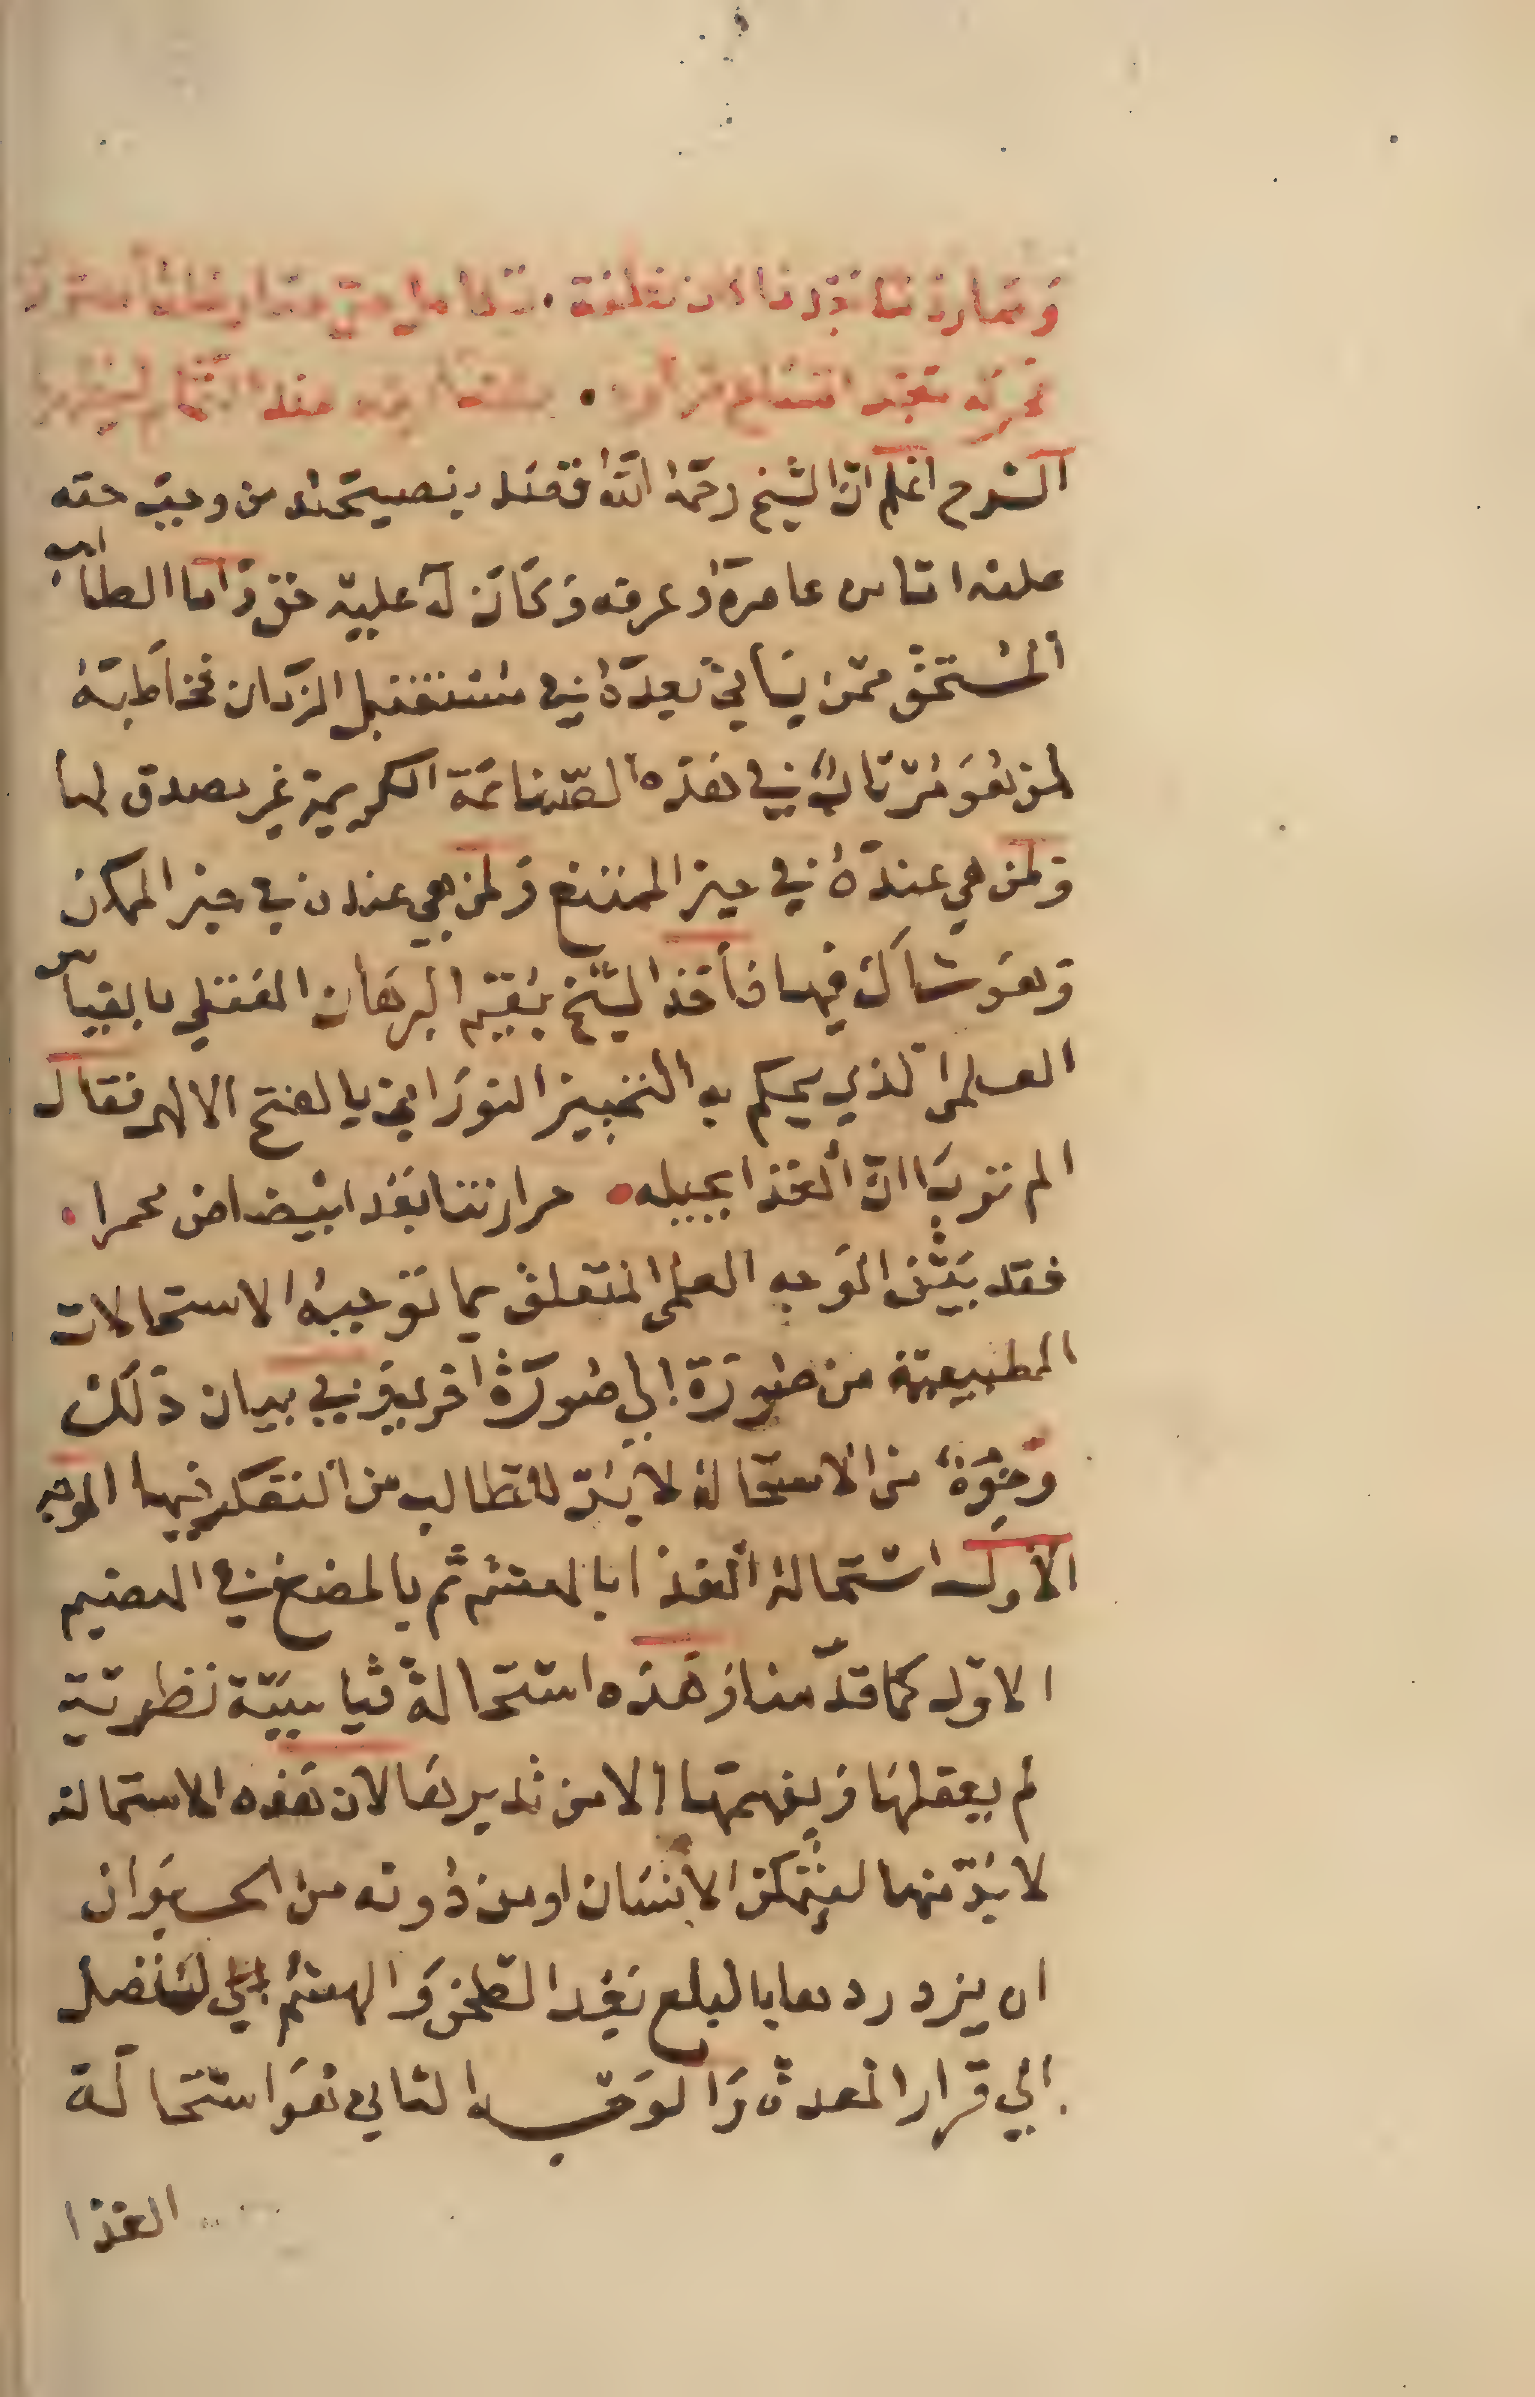 الشرح اعلم ان الشيخ رحمه الله قصد بنصيحته من وجب حقه
عليه اما من عاصره وعرفه وكان له عليه حق واما الطالب
المستحق ممن ياتي بعده في مستقبل الزمان فخاطبه
لمن هو مرتاب في هذه الصناعة الكريمة غير مصدق لها
ولمن هي عنده في حيز الممتنع ولمن هي عنده في حيز الممكن
وهو شاك فيها فأخذ الشيخ يقيم البرهان العقلي بالقياس
العلمي الذي يحكم به التمييز النوراني بالفتح الالهي فقال
الم تريا ان الغذا يحيله • حرارتنا بعد ابيضاض محمرا •
فقد بين الوجه العلمي المتعلق بما توجبه الاستحالات
الطبيعية من صورة الي صورة اخري في بيان ذلك
وجوه من الاستحالة لا بد للطالب من التفكر فيها الوجه
الاول استحالة الغذا بالهشم ثم بالمضغ في الهضم
الاول كما قدمنا وهذه استحالة قياسية نظرية
لم يعقلها ويفهمها الا من تدبرها لان هذه الاستحالة
لا بد منها ليتمكن الانسان او من دونه من الحيوان
ان يزدردها بالبلع بعد الطحن والهشم لتصل
الي قرار المعدة والوجه الثاني هو استحالة
الغذا